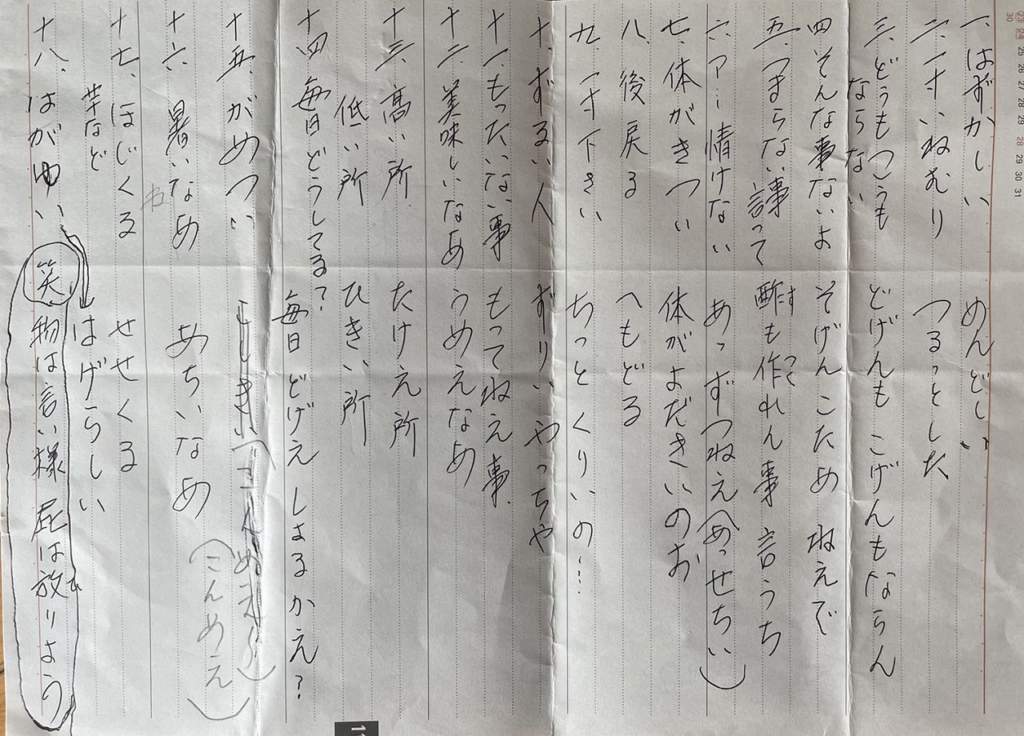 一、はずかしい　めんどしい
二、一寸いねむり　つるっとした
三、どうもこうも　どげんもこげんもならん
ならない
四 そんな事ないよ　そげんこためねえで
五、つまらない事言って　酢も作れん事言うち
す つく
六、アーー情けない　あっずつねえ(めっせちい)
七、体がきつい　体がよだきいのお
八、後戻る　へもどる
九、一寸下さい　ちっとくりいの…
十、ずるい人　ずりいやっちゃ
十一、もったいない事　もってねえ事
十二、美味しいなあ　うめえなあ
十三、高い所　たけえ所
低い所　ひきい所
十四、毎日どうしてる？　毎日どげえしよるかえ？
十五、がめつい
(こんめえ)
十六、暑いなあ　あちいなあ
十七、ほじくる　せせくる
芋など
十八、はがゆい　はげらしい
笑 物は言い様 屁は放りよう
ひ
23 24 25 26 27 28 29
30
28 29 30 31